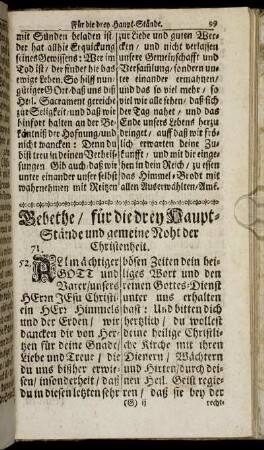 Für die drey Haupt-Stände. 99
mit Sünden beladen ist /
der hat allhie Erquickung
seines Gewissens: Wer im
Tod ist / der findet hie das
ewige Leben. So hilf nun /
gütiger GOtt / daß uns diß
Heil. Sacrament gereiche
zur Seligkeit / und daß wir
hinfort halten an der Be-
käntniß der Hofnung / und
nicht wancken: Denn du
bist treu in deinen Verheis-
sungen. Gib auch / daß wir
unter einander unser selbst
wahrnehmen mit Reitzen
zur Liebe und guten Wer-
cken / und nicht verlassen
unsere Gemeinschafft und
Versamlung / sondern un-
ter einander ermahnen /
und das so viel mehr / so
viel wir alle sehen / daß sich
der Tag nahet / und das
Ende unsers Lebens herzu
dringet / auff daß wir frö-
lich erwarten deine Zu-
kunfft / und mit dir einge-
hen in dein Reich / zu essen
das Himmel-Brodt mit
allen Auserwählten / Am.
Gebethe / für die drey Haupt-
Stände und gemeine Noht der
Christenheit.
71.
52. ALlmächtiger
GOTT und
Vater / unsers
HErrn JEsu Christi /
ein HErr Himmels
und der Erden / wir
dancken dir von Her-
tzen für deine Gnade /
Liebe und Treue / die
du uns bißher erwie-
sen / insonderheit / daß
du in diesen letzten sehr
bösen Zeiten dein hei-
liges Wort und den
reinen Gottes-Dienst
unter uns erhalten
hast: Und bitten dich
hertzlich / du wollest
deine heilige Christli-
che Kirche mit ihren
Dienern / Wächtern
und Hirten / durch dei-
nen Heil. Geist regie-
ren / daß sie bey der
(G) ij
recht-